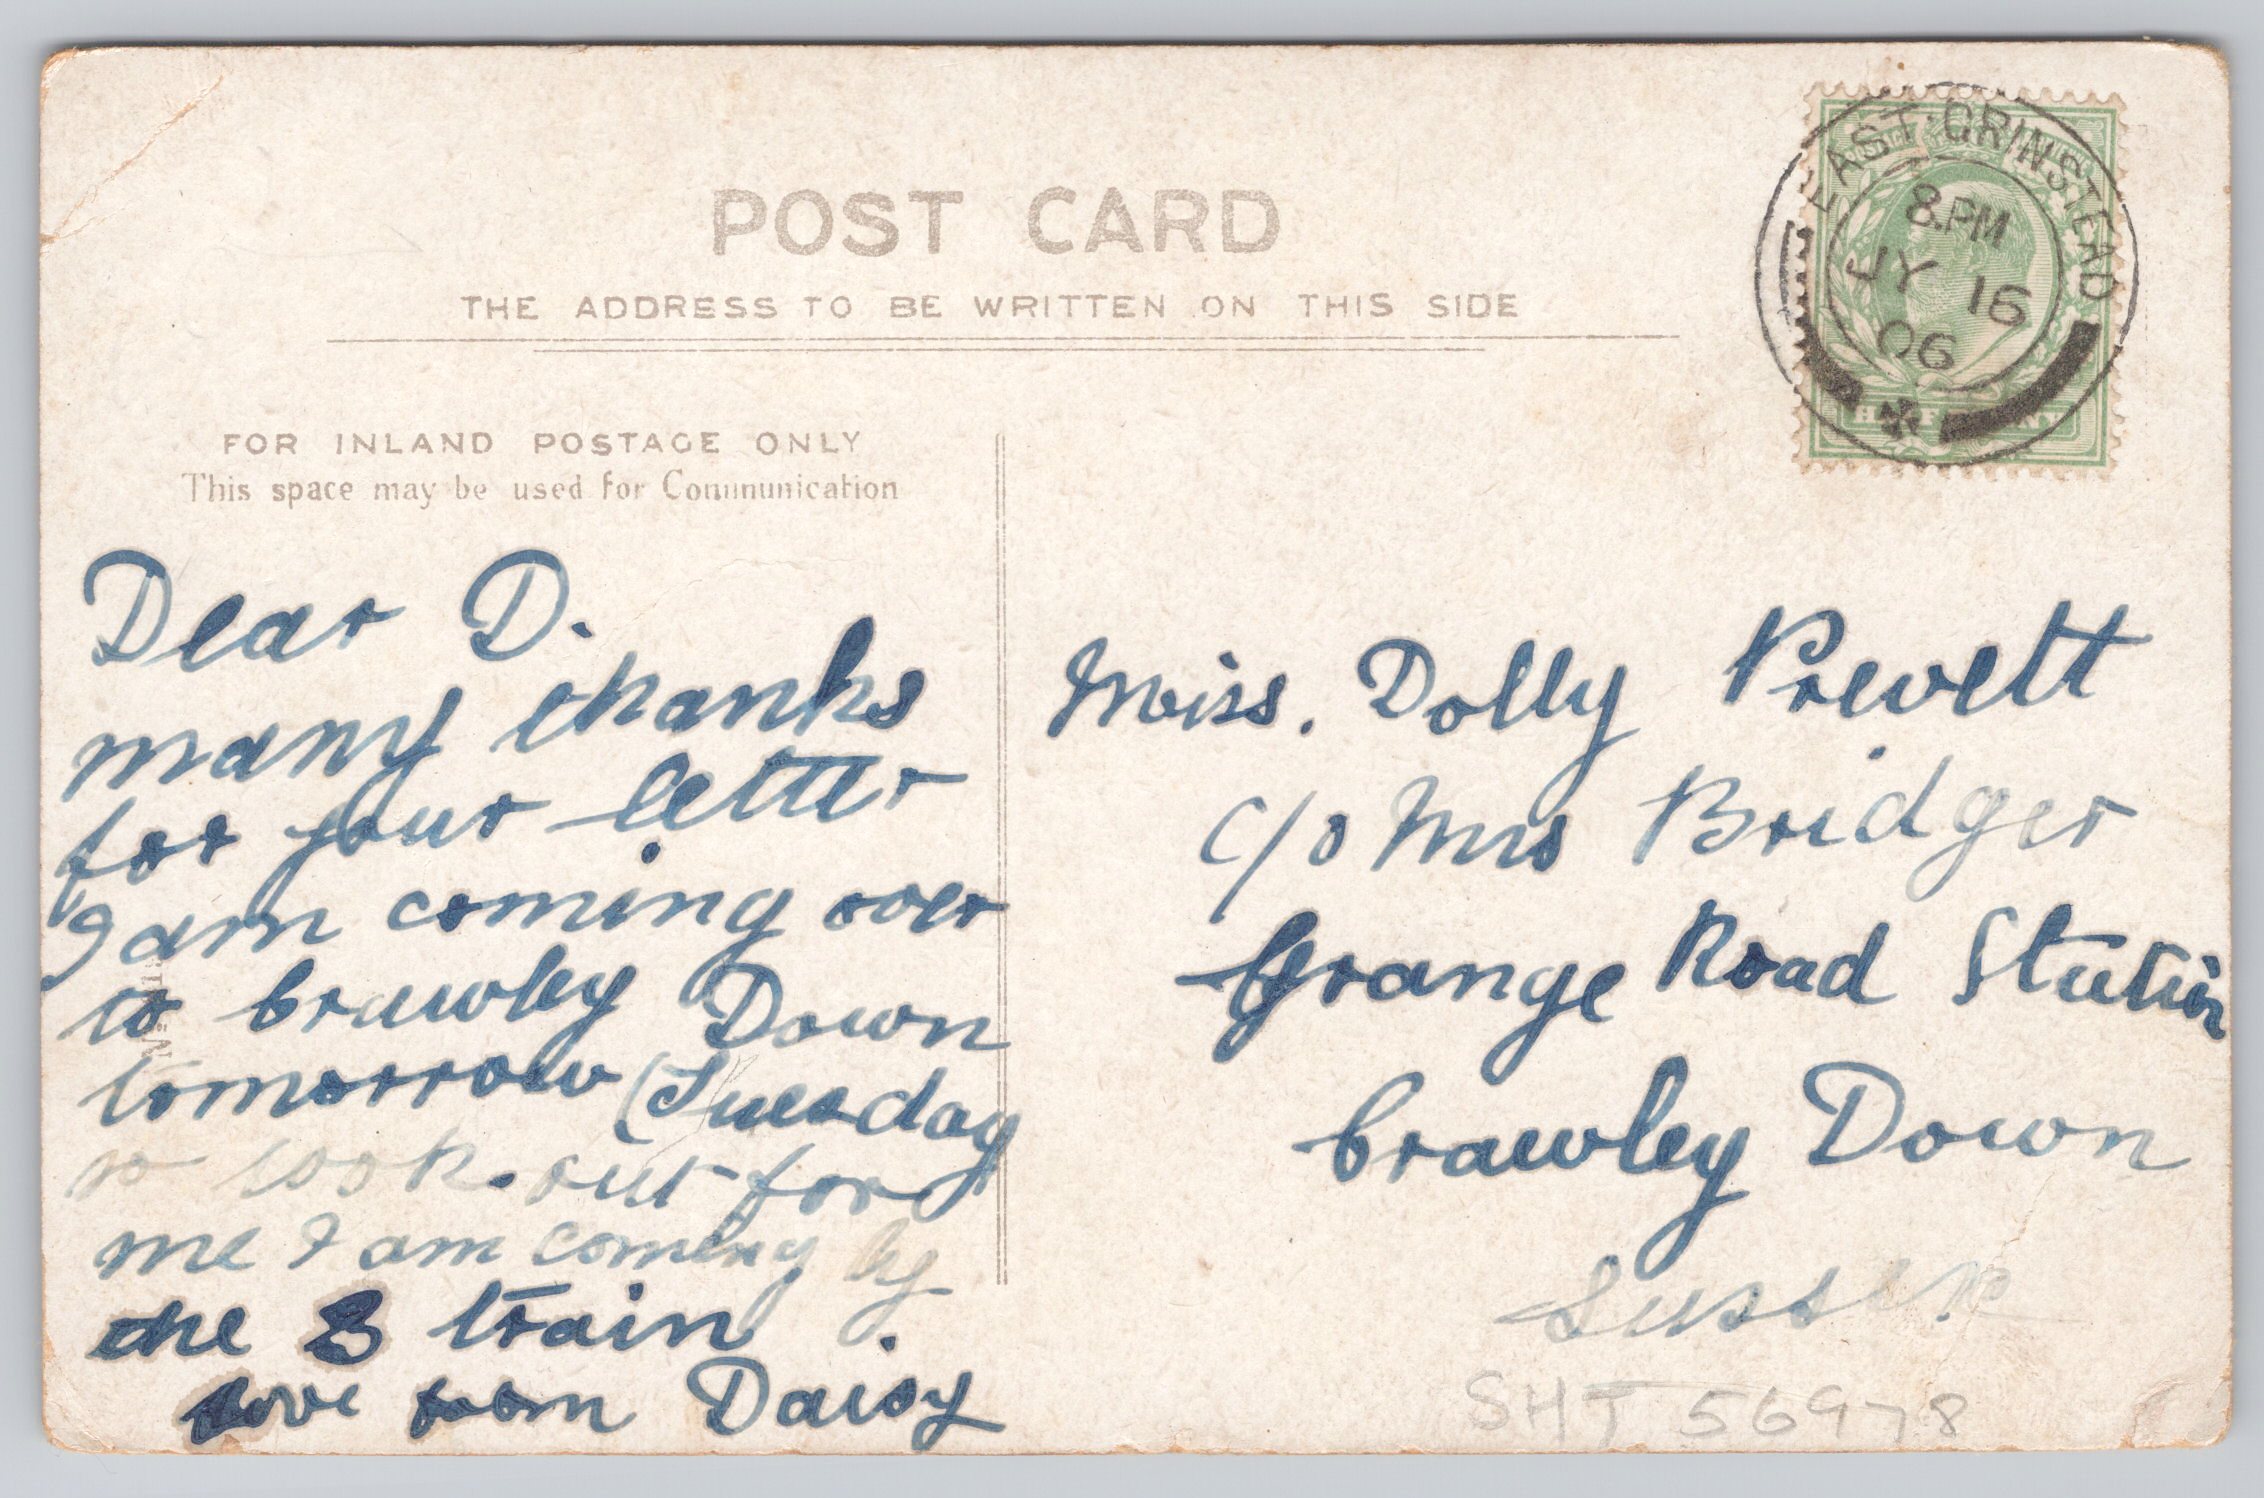 POST CARD
THE ADDRESS TO BE WRITTEN ON THIS SIDE
EAST·GRINSTEAD
8.PM
JY 16
06
FOR INLAND POSTAGE ONLY
This space may be used for Communication
Dear D.
many thanks
for your letter
I am coming over
to Crawley Down
tomorrow (Tuesday
so look out for
me I am coming by
the 3 train.
love from Daisy
Miss. Dolly Prevett
C/o Mrs Bridger
Grange Road Station
Crawley Down
Sussex
SHT 56978